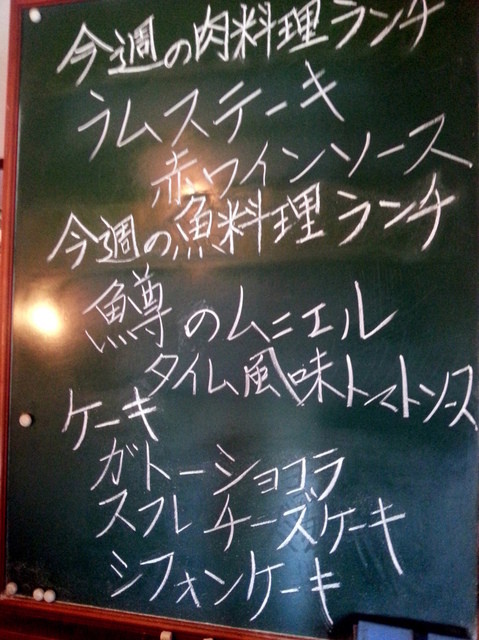 今週の肉料理ランチ
ラムステーキ
赤ワインソース
今週の魚料理ランチ
鱒のムニエル
タイム風味トマトソース
ケーキ
ガトーショコラ
スフレチーズケーキ
シフォンケーキ